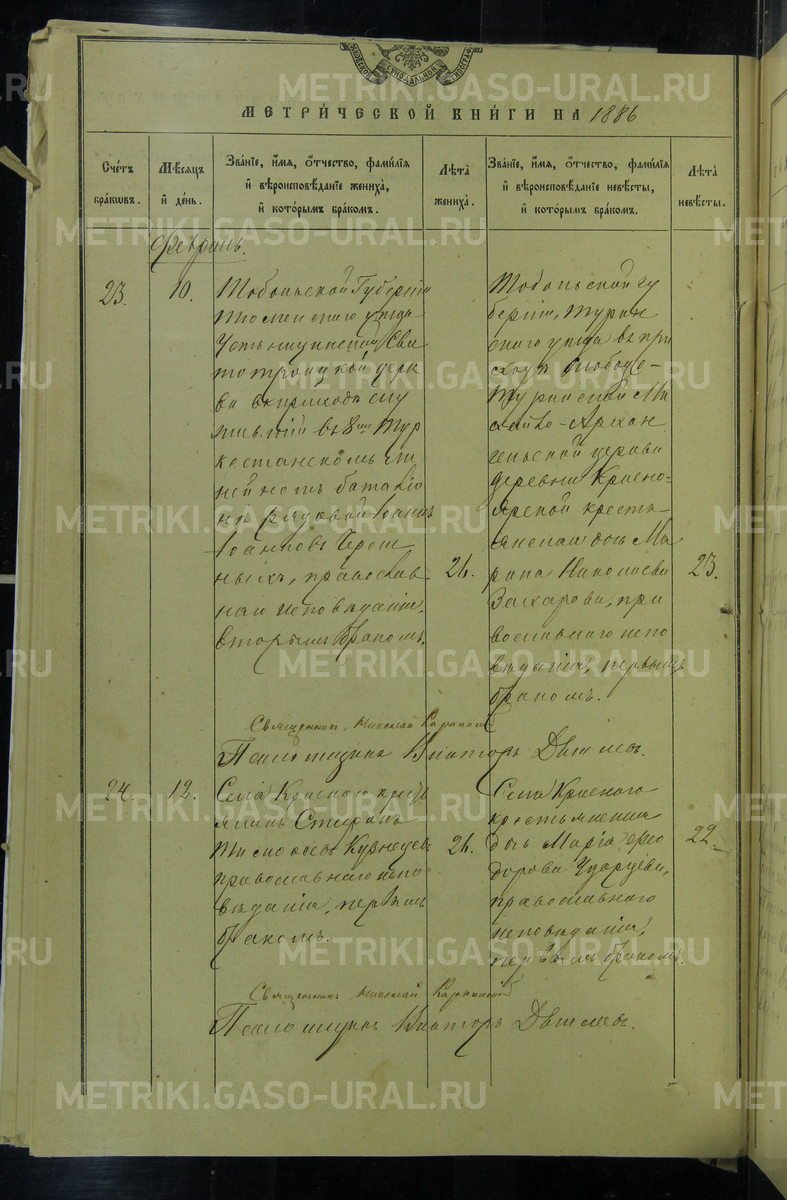 МЕТРИ́ЧЕСКОЙ КНИ́ГИ НА 1886
Счетъ браковъ.
Мѣсяцъ и день.
Званіе, имя, отчество, фамилія и вѣроисповѣданіе жениха, и которымъ бракомъ.
Лѣта жениха.
Званіе, имя, отчество, фамилія и вѣроисповѣданіе невѣсты, и которымъ бракомъ.
Лѣта невѣсты.
Февраль.
23.
10.
Тобольской Губерніи
Тюменскаго уѣзда
Усть ницинской Свя
то троицкой церк
ви въ приходѣ слу
жившій въ 8мъ Тур
кестанскомъ ли
нейномъ баталіо
нѣ рядовой Іоаннъ
Іоанновъ
ныхъ, православ
наго исповѣданія,
вторымъ бракомъ.
26.
Тобольской гу
берніи, Турин
скаго уѣзда въ при
ходѣ Слободо-
Туринской Ми
хайло-Архан
гельской церкви
деревни Красно-
ярской кресть
янская дочь Ма
рина Николаева
Захарова, пра
вославнаго испо
вѣданія, первымъ
бракомъ.
23.
Священникъ Николай
Псаломщикъ Викторъ
24.
12.
Села Краснаго кресть
янинъ Стефанъ
Тимофеевъ Кузнецовъ
православнаго испо
вѣданія, первымъ
бракомъ.
26.
Села Краснаго
крестьянская
дочь Марія Ѳео
дорова Ударцева,
православнаго
исповѣданія,
первымъ бракомъ.
22.
Священникъ Николай
Псаломщикъ Викторъ
METRIKI.GASO-URAL.RU